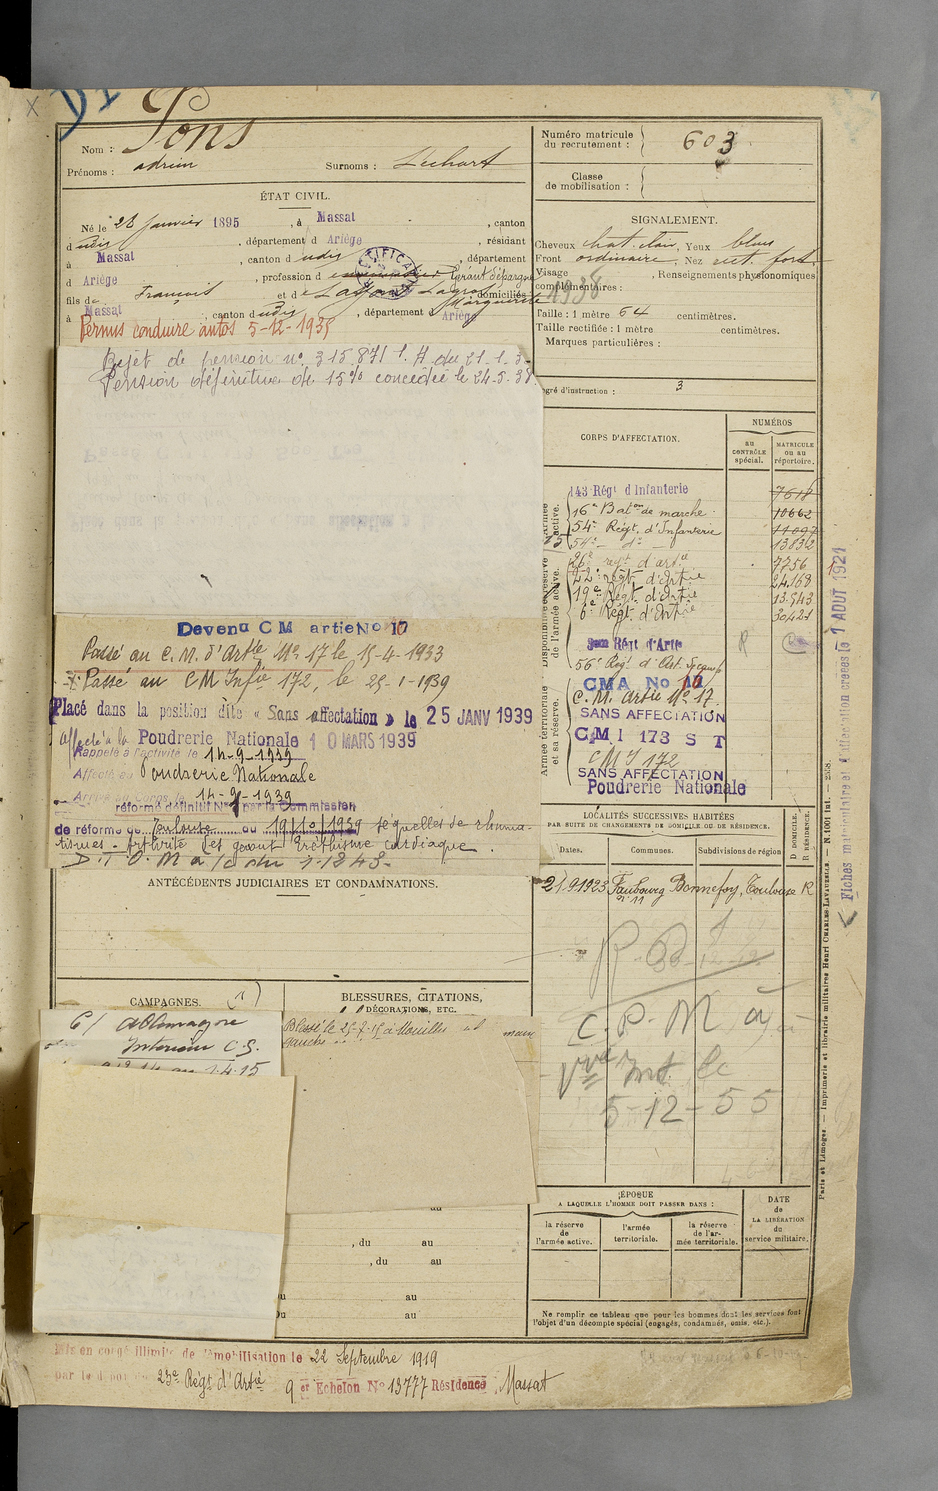 Pons
Nom :
Prénoms : adrien
Surnoms : Luchart
ÉTAT CIVIL.
Né le 28 Janvier 1895, à Massat, canton
d udis, département d Ariège, résidant
à Massat, canton d udis, département
d Ariège, profession d
fils de François et de Lagros Marguerite domiciliés
à Massat, canton d udis, département d Ariège
Permis conduire autos 5-12-1935
Rejet de pension n° 315871 du 21-1-3
Pension définitive de 15% concédée le 24-5-38.
Devenu C M artie No 17
Passé au C. M. d'Artie N° 17 le 15-4-1933
Passé au C M Infie 172, le 25-1-1939
Placé dans la position dite « Sans affectation » le 25 JANV 1939
affecté à la Poudrerie Nationale 10 MARS 1939
Rappelé à l'activité le 14-9-1939
Affecté au Poudrerie Nationale
Arrivé au corps le 14-9-1939
réformé définitif N° par la Commission
de réforme de Toulouse du 19/10/1939 séquelles de rhuma
tismes - Arthrite des genoux Eréthisme cardiaque.
ANTÉCÉDENTS JUDICIAIRES ET CONDAMNATIONS.
CAMPAGNES.
C/ Allemagne
Intérieur C.S.
au 1.4.15
BLESSURES, CITATIONS,
DÉCORATIONS, ETC.
Blessé le 25-7-15 à Nouilles main
gauche
au
, du au
, du au
du au
Du au
Numéro matricule
du recrutement : 603
Classe
de mobilisation :
SIGNALEMENT.
Cheveux chat. clair, Yeux bleus
Front ordinaire, Nez rect. fort
Visage , Renseignements physionomiques
complémentaires : 1938
Taille : 1 mètre 64 centimètres.
Taille rectifiée : 1 mètre centimètres.
Marques particulières :
egré d'instruction : 3
CORPS D'AFFECTATION.
NUMÉROS
au
CONTRÔLE
spécial.
MATRICULE
ou au
répertoire.
Armée
active.
Disponibilité et réserve
de l'armée active.
Armée territoriale
et sa réserve.
143 Régt d'Infanterie 7618
16e Baton de marche 10662
54e Régt. d'Infanterie 11097
54e - d° - 13832
26e régt d'artie 7756
22e régt d'artie 24169
19e Régt. d'Artie 13.943
6e Régt. d'Artie 30421
3me Régt d'Artie
56e Régt. d'Art. de camp
CMA No 10
C. M. Artie N° 17.
SANS AFFECTATION
C M I 173 S T
C M I 172
SANS AFFECTATION
Poudrerie Nationale
LOCALITÉS SUCCESSIVES HABITÉES
PAR SUITE DE CHANGEMENTS DE DOMICILE OU DE RÉSIDENCE.
Dates.
Communes.
Subdivisions de région
D DOMICILE.
R RÉSIDENCE.
21.9.1923 Faubourg Bonnefoy, Toulouse R
n° 11
C. P. M à
5-12-55
ÉPOQUE
A LAQUELLE L'HOMME DOIT PASSER DANS :
la réserve
de
l'armée active.
l'armée
territoriale.
la réserve
de l'ar-
mée territoriale.
DATE
de
LA LIBÉRATION
du
service militaire.
Ne remplir ce tableau que pour les hommes dont les services font
l'objet d'un décompte spécial (engagés, condamnés, omis, etc.).
Fiches matriculaire et d'affectation créées le 1 AOUT 1921
Paris et Limoges. — Imprimerie et librairie militaires Henri CHARLES-LAVAUZELLE. — N. 1001 int. — 2358.
Mis en congé illimité de démobilisation le 22 Septembre 1919
par le dépôt du 23e Régt d'Artie 9 e Echelon No 13777 Résidence Massat